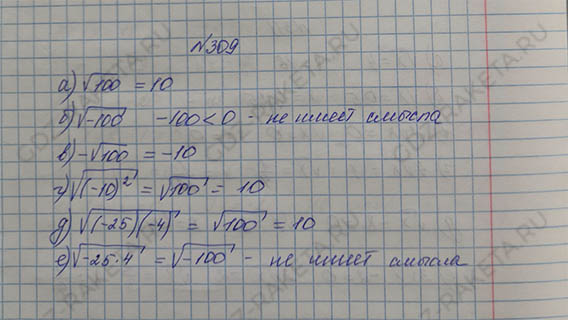 №309
а) √100 = 10
б) √-100 -100<0 - не имеет смысла
в) -√100 = -10
г) √(-10)² = √100 = 10
д) √(-25)(-4) = √100 = 10
е) √-25·4 = √-100 - не имеет смысла
GDZ-RAKETA.RU